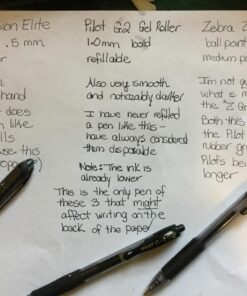 sion Elite
.5 mm
hand
does
n like
lls
se this
Pilot G2 Gel Roller
1.0mm bold
refillable
Also very smooth
and noticeably darker
I have never refilled
a pen like this –
have always considered
them disposable
Note: The ink is
already lower
This is the only pen of
these 3 that might
affect writing on the
back of the paper
Zebra Z
ball point
medium po
I'm not
what is m
the "Z Gr
Both this
the Pilot
rubber gr
Pilot's be
longer